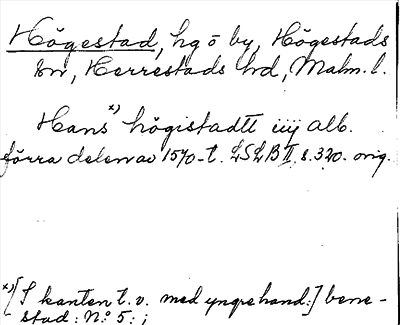 Högestad, hg o by, Högestads
sn, Herrestads hd, Malm. l.
Hans *) högistadtt iiij alb.
förra delen av 1570-t. LSLB II, s. 320. orig.
*) [I kanten t. v. med yngre hand:] bene-
stad: No 5: ;